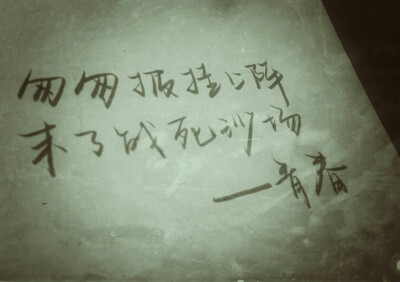 匆匆披挂上阵
末了战死沙场
——青春